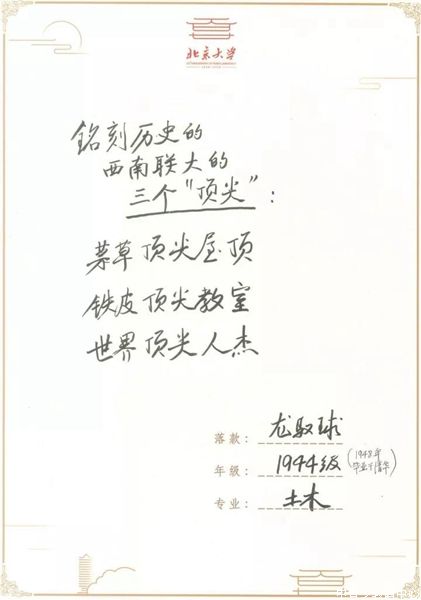 北京大学
铭刻历史的
西南联大的
三个“顶尖”：
茅草顶尖屋顶
铁皮顶尖教室
世界顶尖人杰
落款： 龙驭球
年级： 1944级（1948年毕业于清华）
专业： 土木